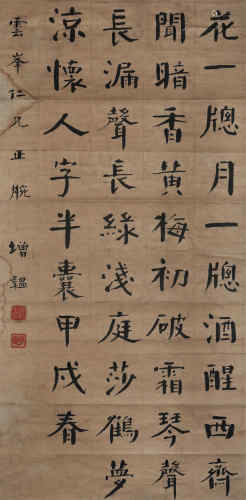 花一牕月一牕酒醒西齊
聞暗香黃梅初破霜琴聲
長漏聲長綠淺庭莎鶴夢
涼懷人字半囊甲戌春
雲峯仁兄正腕
增韞